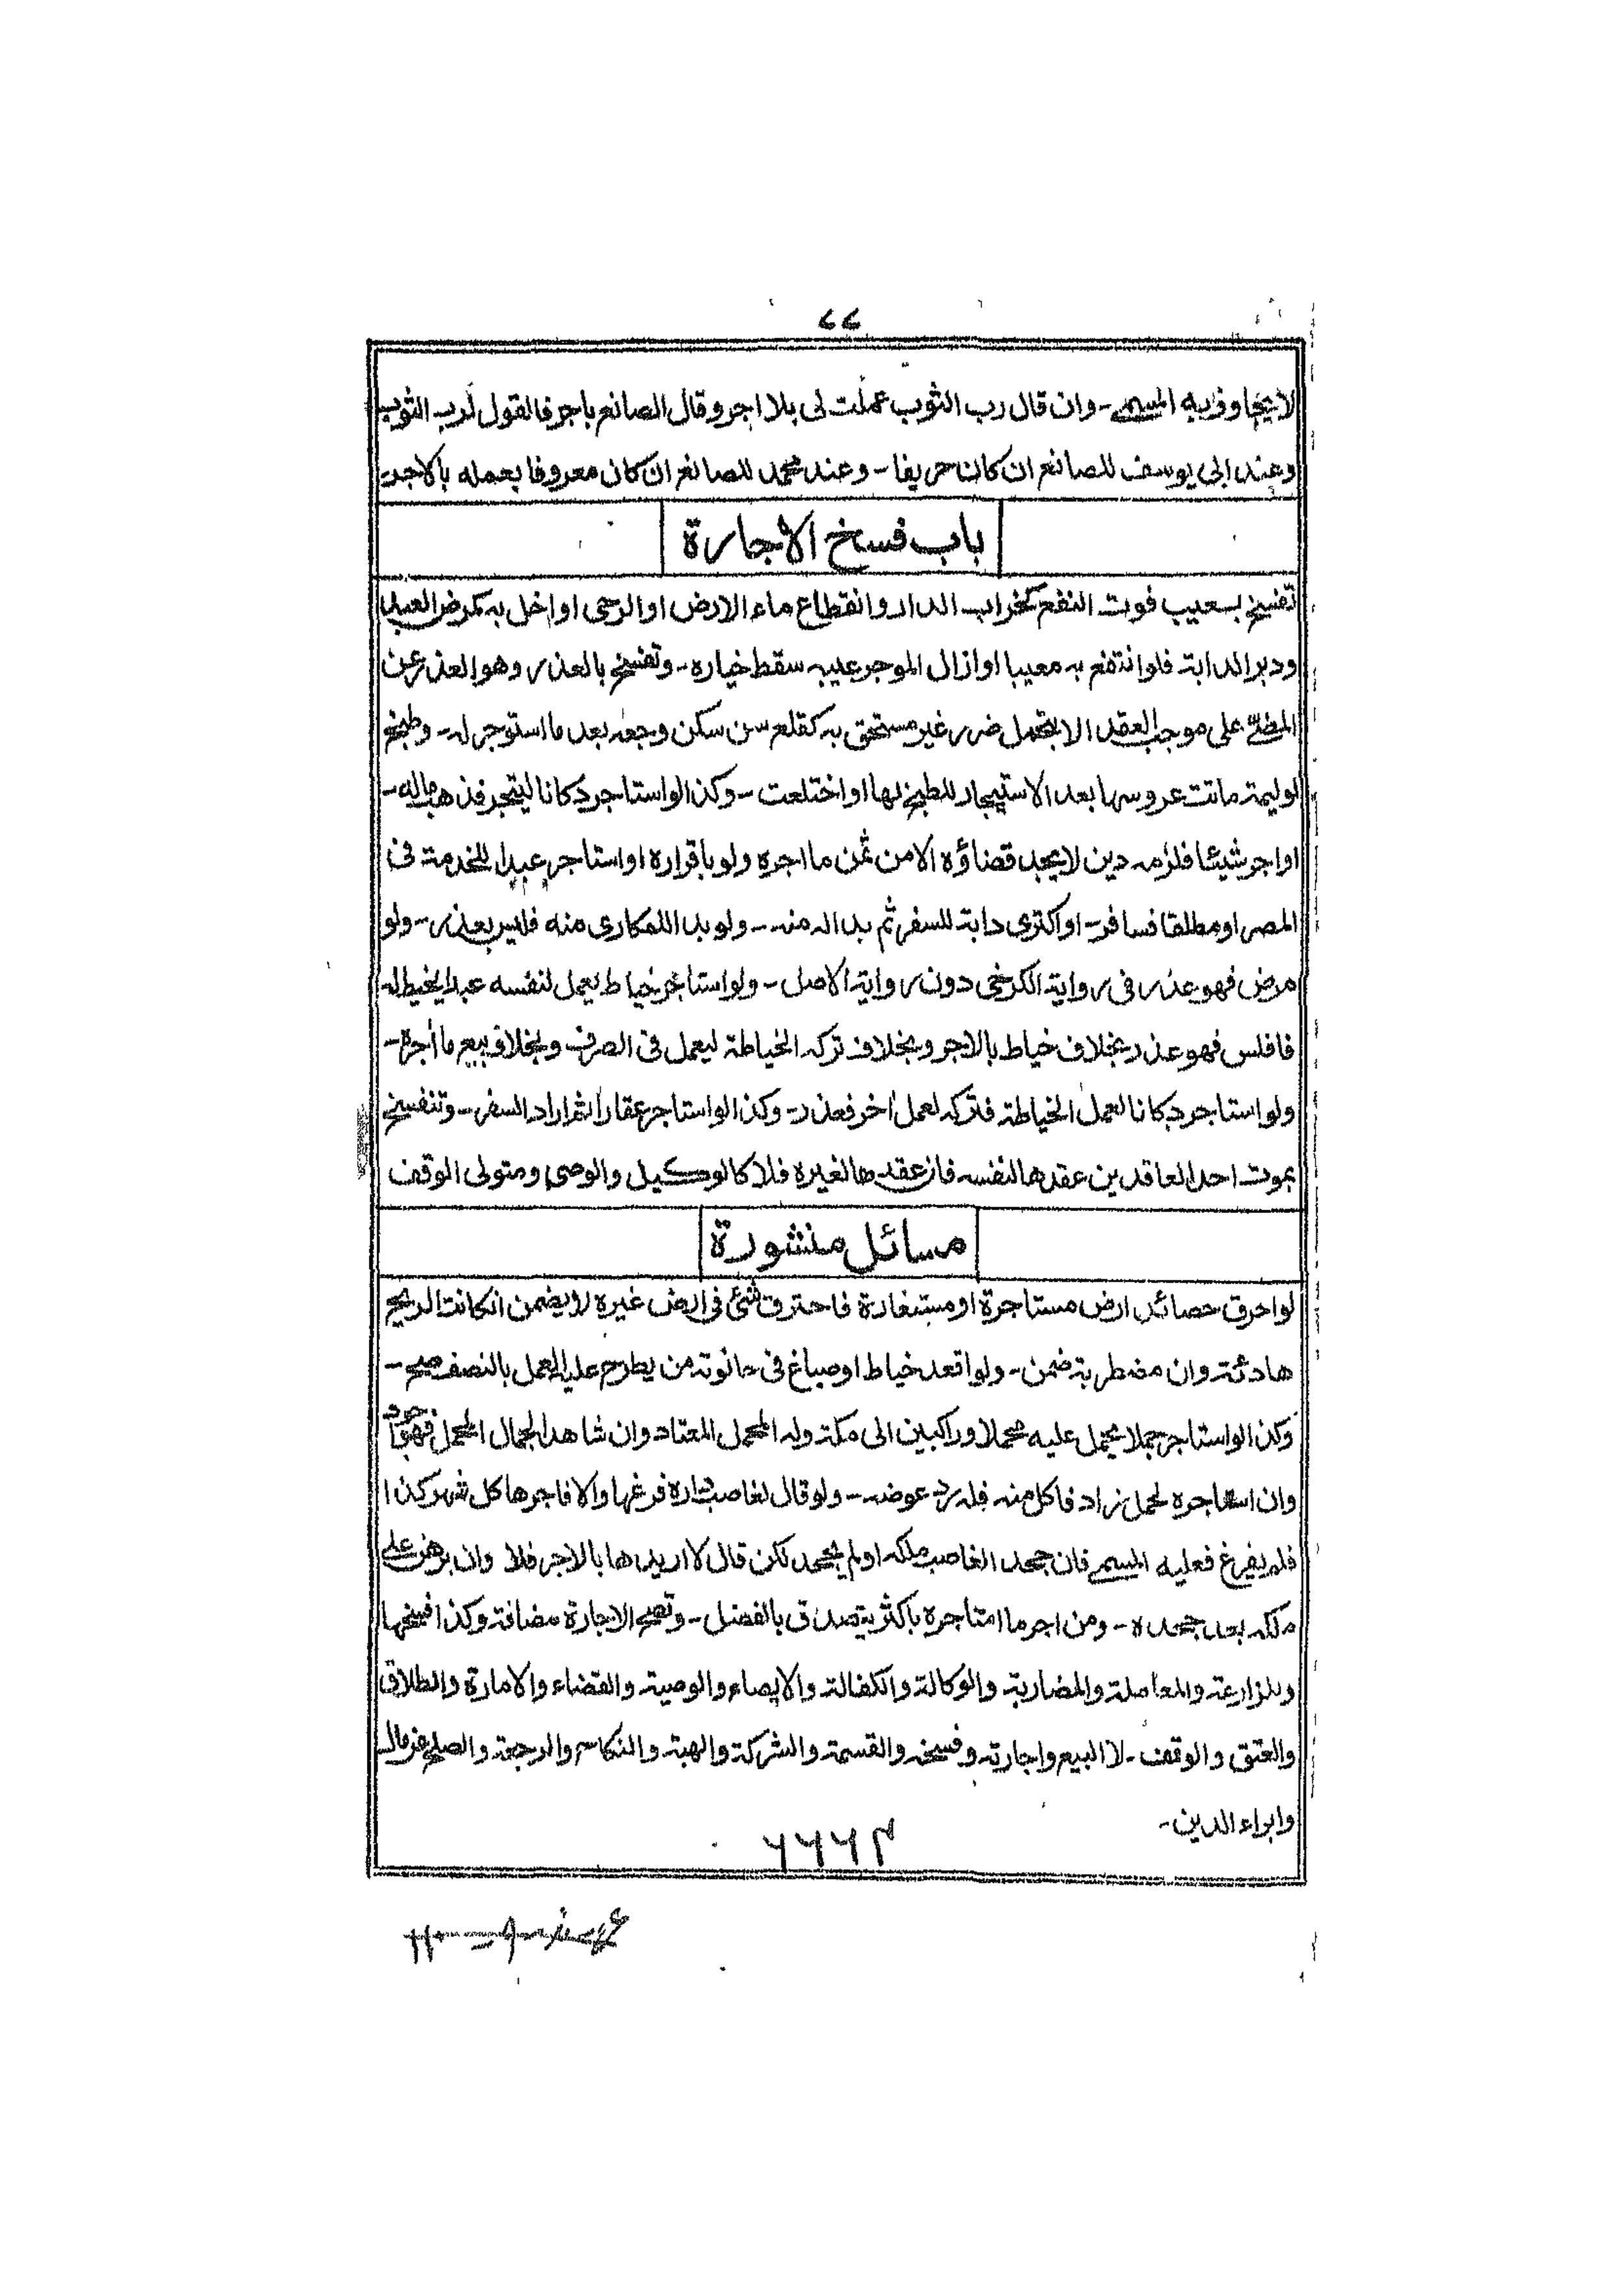 ٧٧
لا يجاوز به المسمے - وان قال رب الثوب عملت لی بلا اجر وقال الصانع باجر فالقول لرب الثوب
وعند ابی يوسف للصانع ان كان حريفا - وعند محمد للصانع ان كان معروفا بعمله بالاجرة
باب فسخ الاجارة
تفسخ بعيب فوت النفع كخراب الدار وانقطاع ماء الارض او الرحی او اخل به كمرض العبد
ودبر الدابة فلو انتفع به معيبا او ازال الموجر عيبه سقط خياره - وتفسخ بالعذر وهو العذر عن
المضیّ علی موجب العقد الا بتحمل ضرر غير مستحق به كقلع سن سكن وجعه بعد ما استوجر له - وطبخ
لوليمة ماتت عروسها بعد الاستيجار للطبخ لها او اختلعت - وكذا لو استاجر دكانا ليتجر فذهب ماله -
او اجر شيئا فلزمه دين لا يجد قضاؤه الا من ثمن ما اجره ولو باقراره او استاجر عبدا للخدمة فی
المصر او مطلقا فسافر - او اكتری دابة للسفر ثم بدا له منه - ولو بدا للمكاری منه فليس بعذر - ولو
مرض فهو عذر فی رواية الكرخی دون رواية الاصل - ولو استاجر خياط يعمل لنفسه عبدا يخيط له
فافلس فهو عذر بخلاف خياط بالاجر وبخلاف تركه الخياطة ليعمل فی الصرف وبخلاف بيع ما أجره -
ولو استاجر دكانا لعمل الخياطة فتركه لعمل أخر فعذر - وكذا لو استاجر عقارا ثم اراد السفر - وتنفسخ
بموت احد العاقدين عقدها لنفسه فان عقدها لغيره فلا كالوكيل والوصی ومتولی الوقف
مسائل منثورة
لو احرق حصائد ارض مستاجرة او مستعارة فاحترق شئ فی ارض غيره لا يضمن ان كانت الريح
هادئة وان مضطربة ضمن - ولو اقعد خياط او صباغ فی حانوته من يطرح عليه العمل بالنصف صح -
وكذا لو استاجر جملا يحمل عليه محملا وراكبين الی مكة وله المحمل المعتاد وان شاهد الجمال المحمل فهو اجود
وان استاجره لحمل زاد فاكل منه فله رد عوضه - ولو قال لغاصب داره فرغها والا فاجرها كل شهر كذا
فلم يفرغ فعليه المسمے فان جحد الغاصب ملكه او لم يجحد لكن قال لا اريدها بالاجر فلا وان برهن علی
ملكه بعد جحده - ومن اجر ما استاجره باكثر يتصدق بالفضل - وتصح الاجارة مضافة وكذا فسخها
والمزارعة والمعاملة والمضاربة والوكالة والكفالة والايصاء والوصية والقضاء والامارة والطلاق
والعتق والوقف - لا البيع واجازته وفسخه والقسمة والشركة والهبة والنكاح والرجعة والصلح عن مال
وابراء الدين -